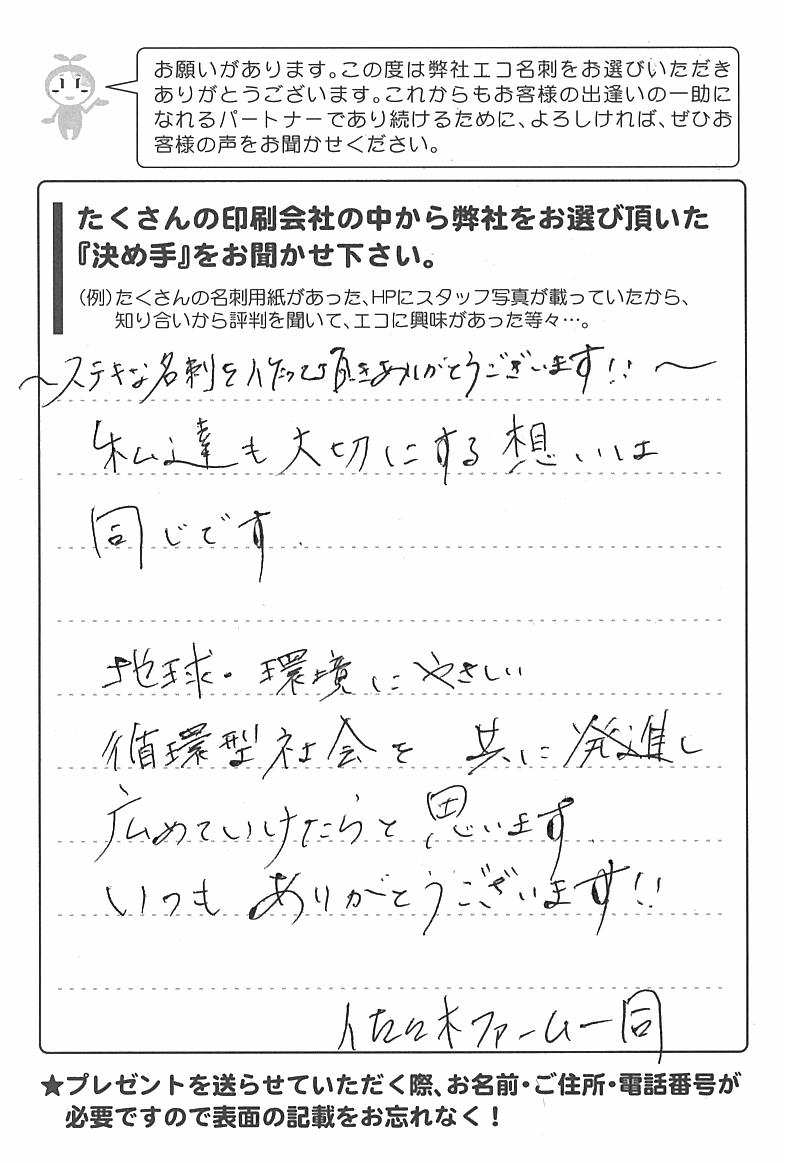 お願いがあります。この度は弊社エコ名刺をお選びいただき
ありがとうございます。これからもお客様の出逢いの一助に
なれるパートナーであり続けるために、よろしければ、ぜひお
客様の声をお聞かせください。
たくさんの印刷会社の中から弊社をお選び頂いた
『決め手』をお聞かせ下さい。
（例）たくさんの名刺用紙があった、HPにスタッフ写真が載っていたから、
知り合いから評判を聞いて、エコに興味があった等々…。
〜ステキな名刺を作って頂きありがとうございます!!〜
私達も大切にする想いは
同じです.
地球・環境にやさしい
循環型社会を共に発進し
広めていけたらと思います.
いつもありがとうございます!!
佐々木ファーム一同
★プレゼントを送らせていただく際、お名前・ご住所・電話番号が
必要ですので表面の記載をお忘れなく！